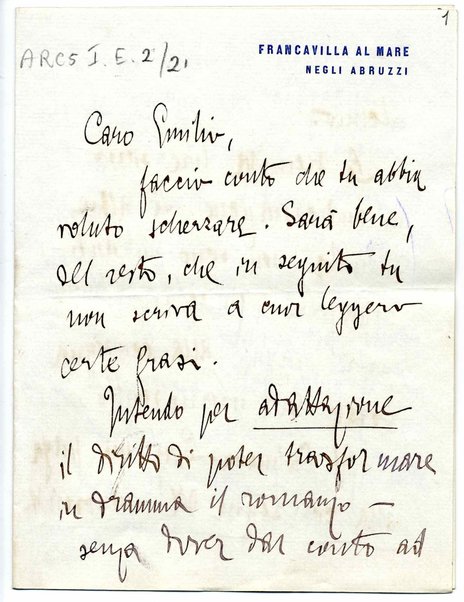 1
ARC5 I. E. 2/21
FRANCAVILLA AL MARE
NEGLI ABRUZZI
Caro Emilio,
faccio conto che tu abbia
voluto scherzare. Sarà bene,
del resto, che in seguito tu
non scriva a cuor leggero
certe frasi.
Intendo per adattazione
il diritto di poter trasformare
in dramma il romanzo –
senza dover dar conto ad